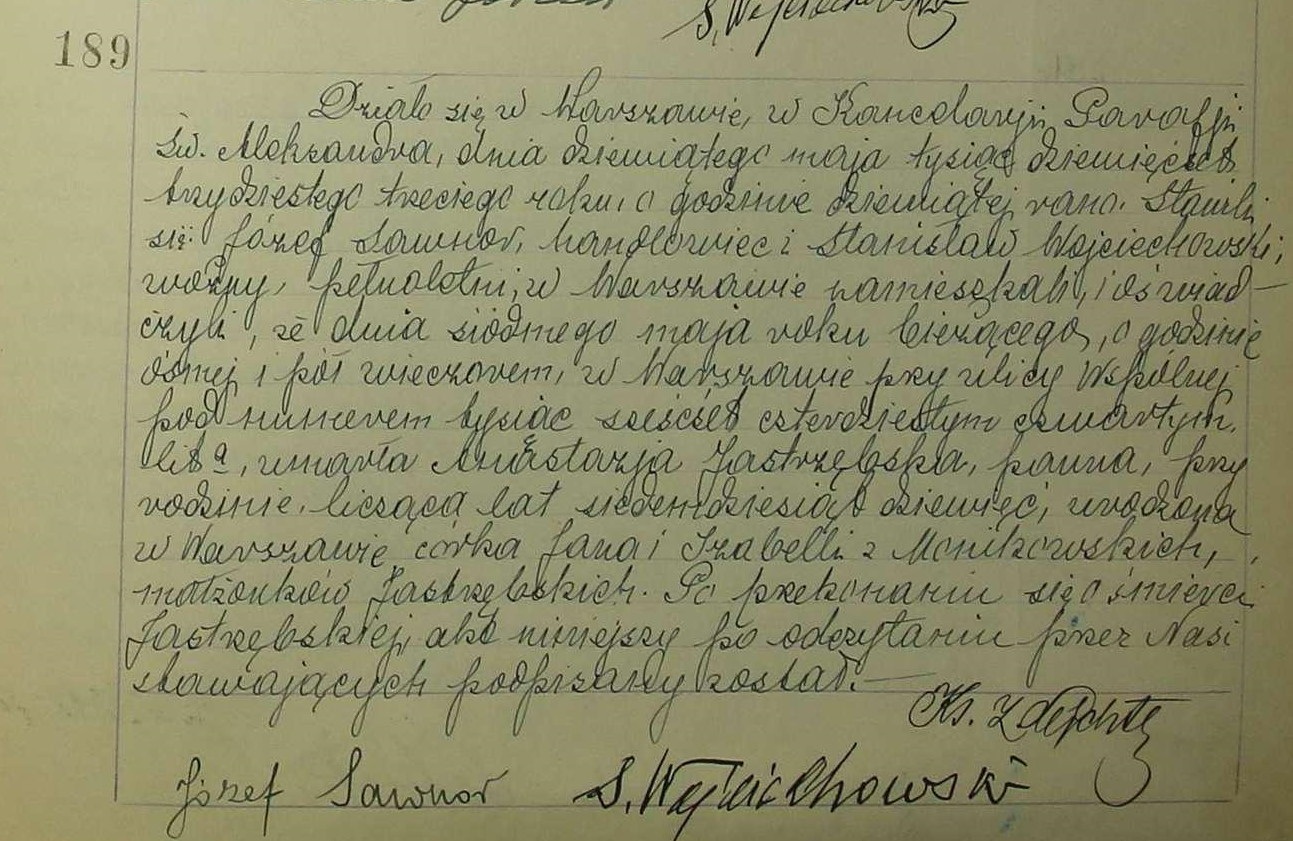 S. Wojciechowski
189
Działo się w Warszawie, w Kancelarji Parafji
Św. Aleksandra, dnia dziewiątego maja tysiąc dziewięćset
trzydziestego trzeciego roku, o godzinie dziewiątej rano. Stawili
się: Józef Sawnor, handlowiec i Stanisław Wojciechowski,
woźny, pełnoletni, w Warszawie zamieszkali, i oświad-
czyli, że dnia siódmego maja roku bieżącego, o godzinie
ósmej i pół wieczorem, w Warszawie przy ulicy Wspólnej
pod numerem tysiąc sześćset czterdziestym czwartym,
lit a, umarła Anastazja Jastrzębska, panna, przy
rodzinie, licząca lat siedemdziesiąt dziewięć, urodzona
w Warszawie, córka Jana i Izabelli z Monikowskich,
małżonków Jastrzębskich. Po przekonaniu się o śmierci
Jastrzębskiej, akt niniejszy po odczytaniu przez Nas i
stawających podpisany został.—
Ks.
Józef Sawnor S. Wojciechowski